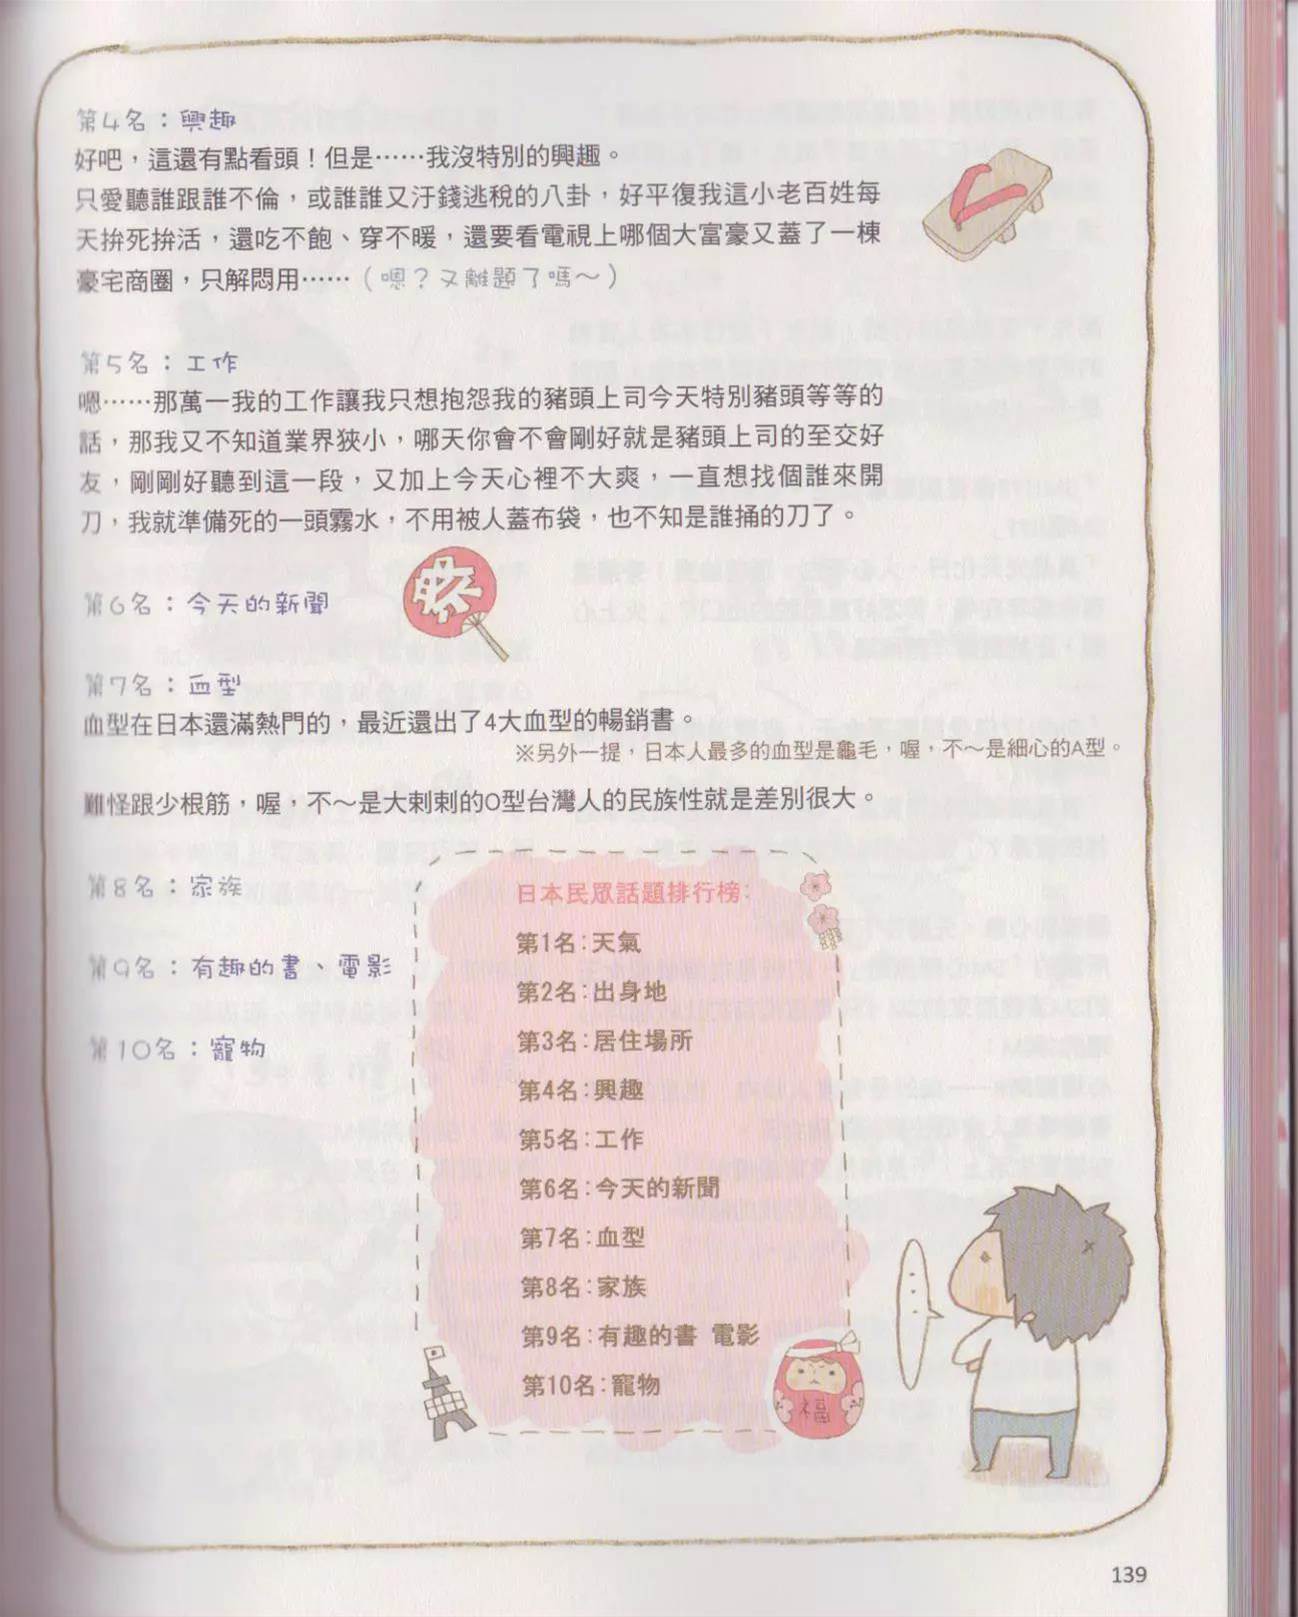 第4名：興趣
好吧，這還有點看頭！但是……我沒特別的興趣。
只愛聽誰跟誰不倫，或誰誰又汙錢逃稅的八卦，好平復我這小老百姓每
天拚死拚活，還吃不飽、穿不暖，還要看電視上哪個大富豪又蓋了一棟
豪宅商圈，只解悶用……（嗯？又離題了嗎～）
第5名：工作
嗯……那萬一我的工作讓我只想抱怨我的豬頭上司今天特別豬頭等等的
話，那我又不知道業界狹小，哪天你會不會剛好就是豬頭上司的至交好
友，剛剛好聽到這一段，又加上今天心裡不大爽，一直想找個誰來開
刀，我就準備死的一頭霧水，不用被人蓋布袋，也不知是誰捅的刀了。
祭
第6名：今天的新聞
第7名：血型
血型在日本還滿熱門的，最近還出了4大血型的暢銷書。
※另外一提，日本人最多的血型是龜毛，喔，不～是細心的A型。
難怪跟少根筋，喔，不～是大剌剌的O型台灣人的民族性就是差別很大。
第8名：家族
第9名：有趣的書、電影
第10名：寵物
日本民眾話題排行榜：
第1名：天氣
第2名：出身地
第3名：居住場所
第4名：興趣
第5名：工作
第6名：今天的新聞
第7名：血型
第8名：家族
第9名：有趣的書 電影
第10名：寵物
……
福
139